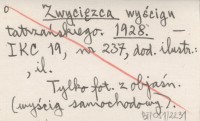 Zwycięzca wyścigu
tatrzańskiego. 1928. –
IKC 19, nr 237, dod. ilustr.:
, il.
Tylko fot. z objaśn.
(wyścig samochodowy).